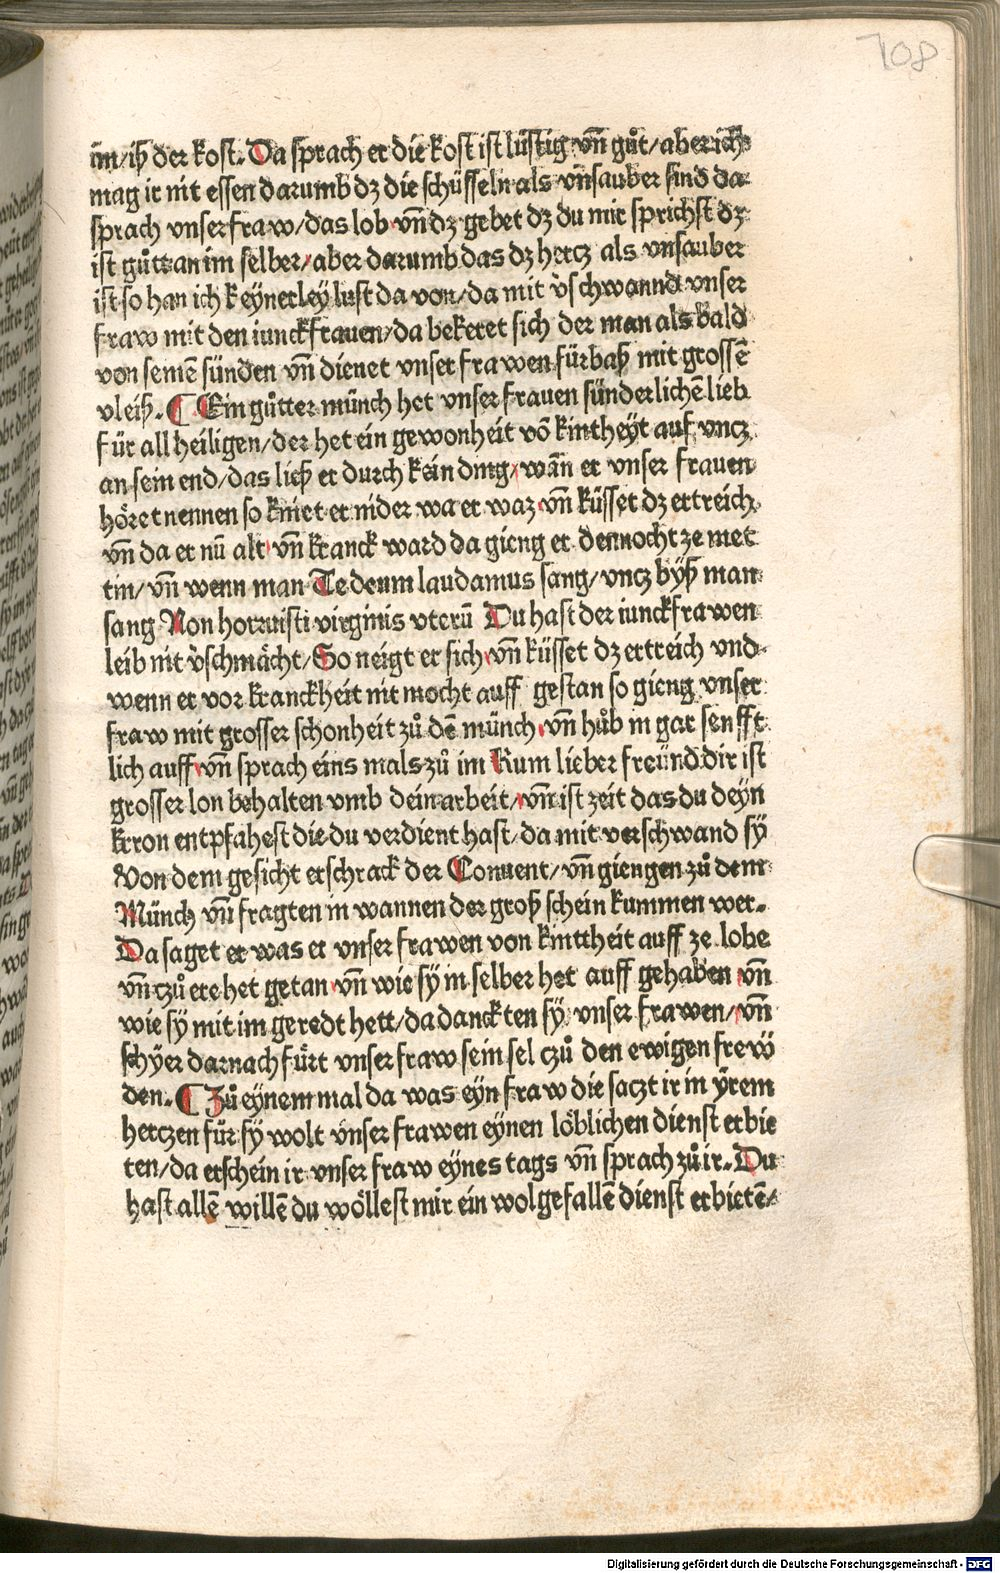 708
im/iß der kost. Da sprach er die kost ist lüstig vn̄ gůt/aber ich
mag ir nit essen darumb dz die schüsseln als vnsauber sind da
sprach vnser fraw/das lob vn̄ dz gebet dz du mir sprichst dz
ist gůtt an im selber/aber darumb das dz hertz als vnsauber
ist so han ich keynerley lust da von/da mit v̉schwannd vnser
fraw mit den iunckfrauen/da bekeret sich der man als bald
von seinē sünden vn̄ dienet vnser frawen fürbaß mit grossē
vleiß. ¶ Ein gůtter münch het vnser frauen sünderlichē lieb
für all heiligen/der het ein gewonheit vō kintheyt auf vncz
an sein end/das ließ er durch kein ding/wān er vnser frauen
höret nennen so kniet er nider wa er waz vn̄ küsset dz ertreich
vn̄ da er nū alt vn̄ kranck ward da gieng er dennocht ze met
tin/vn̄ wenn man Te deum laudamus sang/vncz byß man
sang Non horruisti virginis vterū Du hast der iunckfrawen
leib nit v̉schmächt/So neigt er sich vn̄ küsset dz ertreich vnd
wenn er vor kranckheit nit mocht auff gestan so gieng vnser
fraw mit grosser schonheit zů dē münch vn̄ hůb in gar senfft
lich auff vn̄ sprach eins mals zů im Kum lieber freünd dir ist
grosser lon behalten vmb dein arbeit/vn̄ ist zeit das du deyn
kron entpfahest die du verdient hast/da mit verschwand sy
Von dem gesicht erschrack der Conuent/vn̄ giengen zů dem
Münch vn̄ fragten in wannen der groß schein kummen wer.
Da saget er was er vnser frawen von kinttheit auff ze lobe
vn̄ czů ere het getan vn̄ wie sy in selber het auff gehaben vn̄
wie sy mit im geredt hett/da danckten sy vnser frawen/vn̄
schyer darnach fürt vnser fraw sein sel czů den ewigen frew̎
den. ¶ Zů eynem mal da was eyn fraw die saczt ir in yrem
herczen für sy wolt vnser frawen eynen löblichen dienst erbie
ten/da erschein ir vnser fraw eynes tags vn̄ sprach zů ir. Du
hast allē willē du wöllest mir ein wolgefallē dienst erbietē/
Digitalisierung gefördert durch die Deutsche Forschungsgemeinschaft - DFG